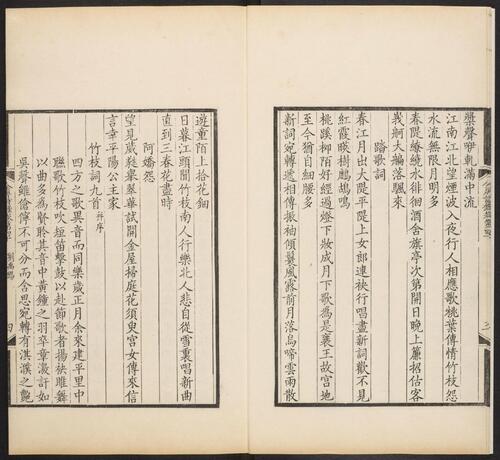 槳聲咿軋滿中流
江南江北望煙波入夜行人相應歌桃葉傳情竹枝怨
水流無限月明多
春隄繚繞水徘徊酒舍旗亭次第開日晚上簾招估客
我軻大艑落颿來
踏歌詞
春江月出大隄平隄上女郎連袂行唱盡新詞歡不見
紅霞暎樹鷓鴣鳴
桃蹊柳陌好經過燈下妝成月下歌爲是襄王故宮地
至今猶自細腰多
新詞宛轉遞相傳振袖傾鬟風露前月落烏啼雲雨散
遊童陌上拾花鈿
日暮江頭聞竹枝南人行樂北人悲自從雪裏唱新曲
直到三春花盡時
阿嬌怨
望見葳蕤舉翠華試開金屋掃庭花須臾宮女傳來信
言幸平陽公主家
竹枝詞九首 并序
四方之歌異音而同樂歲正月余來建平里中
聯歌竹枝吹短笛擊鼓以赴節歌者揚袂睢舞
以曲多爲賢聆其音中黃鐘之羽卒章激訐如
吳聲雖傖儜不可分而含思宛轉有淇濮之豔